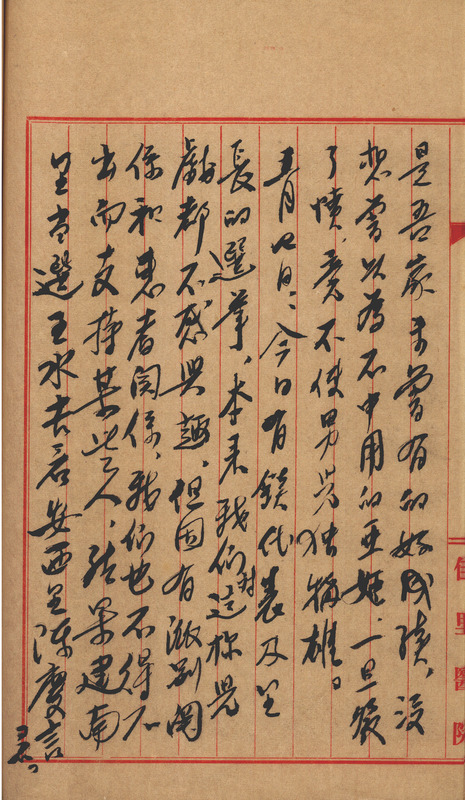 是吾家未曾有的好成績，沒
想嘗以為不中用的亚姬，一旦發
了憤，竟不使男兒独稱雄。
五月四日：今日有鎮代表及里
長的選挙，本来我們对這樣児
戯都不感興趣，但因有派別関
係和患者関係，我們也不得不
出而支持某些人，結果建南
里当選王水吉君安西里陳慶言
君。
佳里醫院